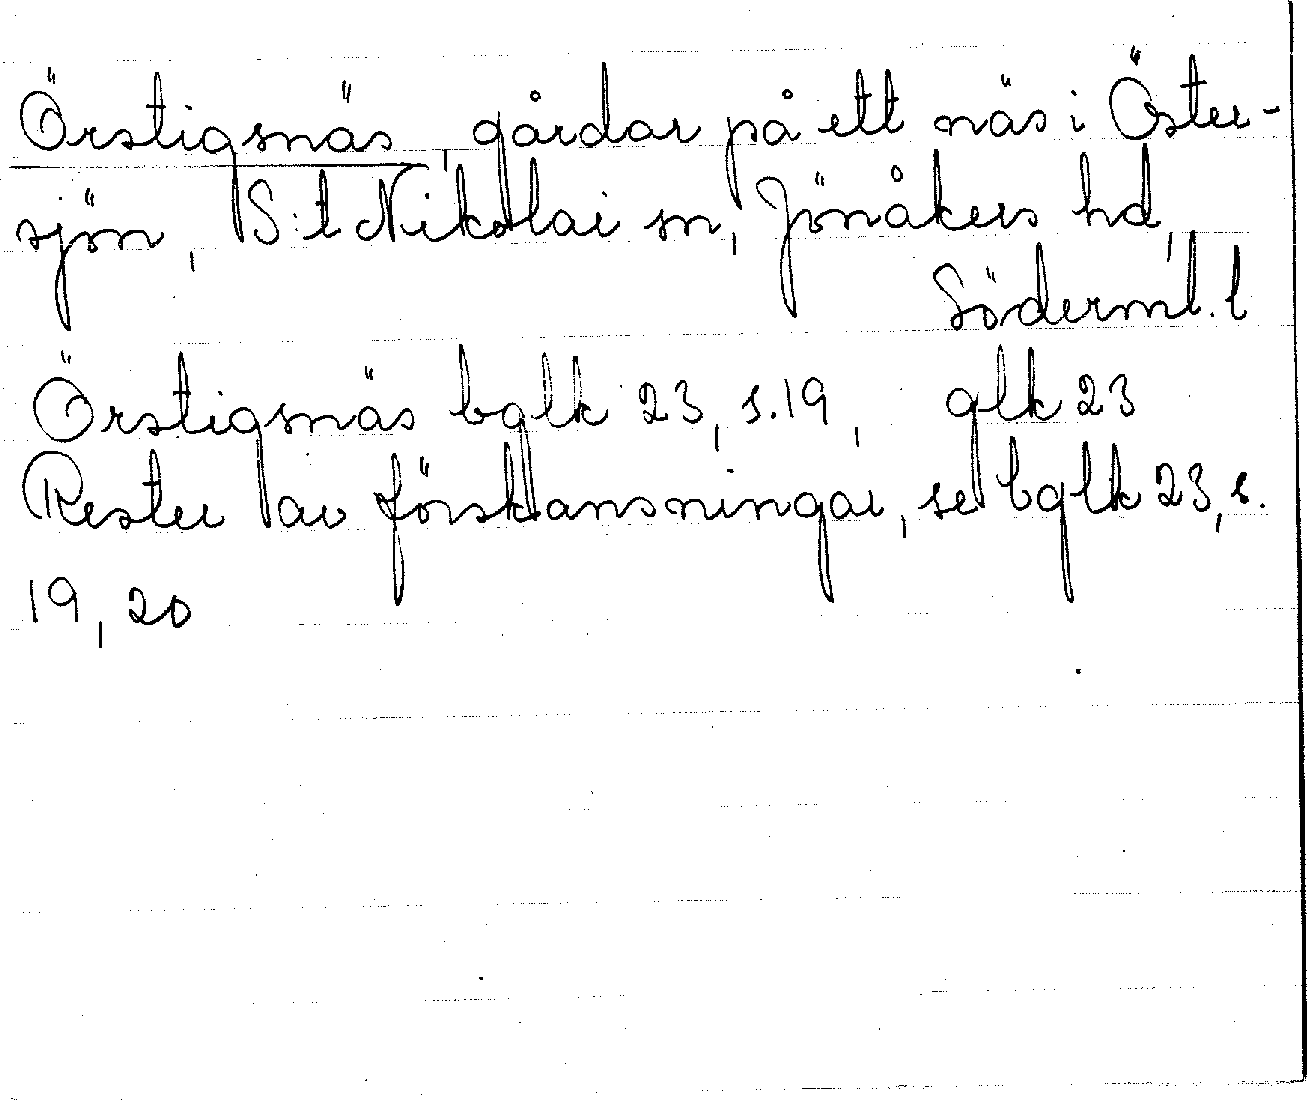 Örstigsnäs, gårdar på ett näs i Öster-
sjön, S:t Nikolai sn, Jönåkers hd,
Söderml. l
Örstigsnäs bglk 23, s. 19, glk 23
Rester av förskansningar, se bglk 23, s.
19, 20